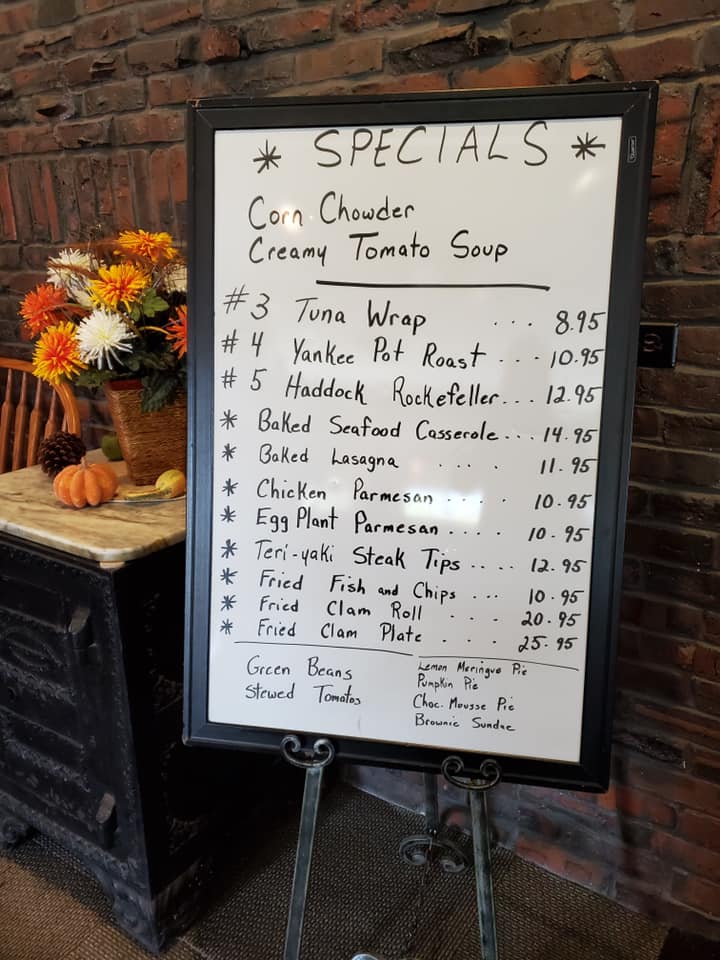 * SPECIALS *
Corn Chowder
Creamy Tomato Soup
#3 Tuna Wrap ... 8.95
#4 Yankee Pot Roast ... 10.95
#5 Haddock Rockefeller... 12.95
* Baked Seafood Casserole... 14.95
* Baked Lasagna .... 11.95
* Chicken Parmesan .... 10.95
* Egg Plant Parmesan .... 10.95
* Teri-yaki Steak Tips .... 12.95
* Fried Fish and Chips ... 10.95
* Fried Clam Roll ... 20.95
* Fried Clam Plate ... 25.95
Green Beans
Stewed Tomatos
Lemon Meringue Pie
Pumpkin Pie
Choc. Mousse Pie
Brownie Sundae